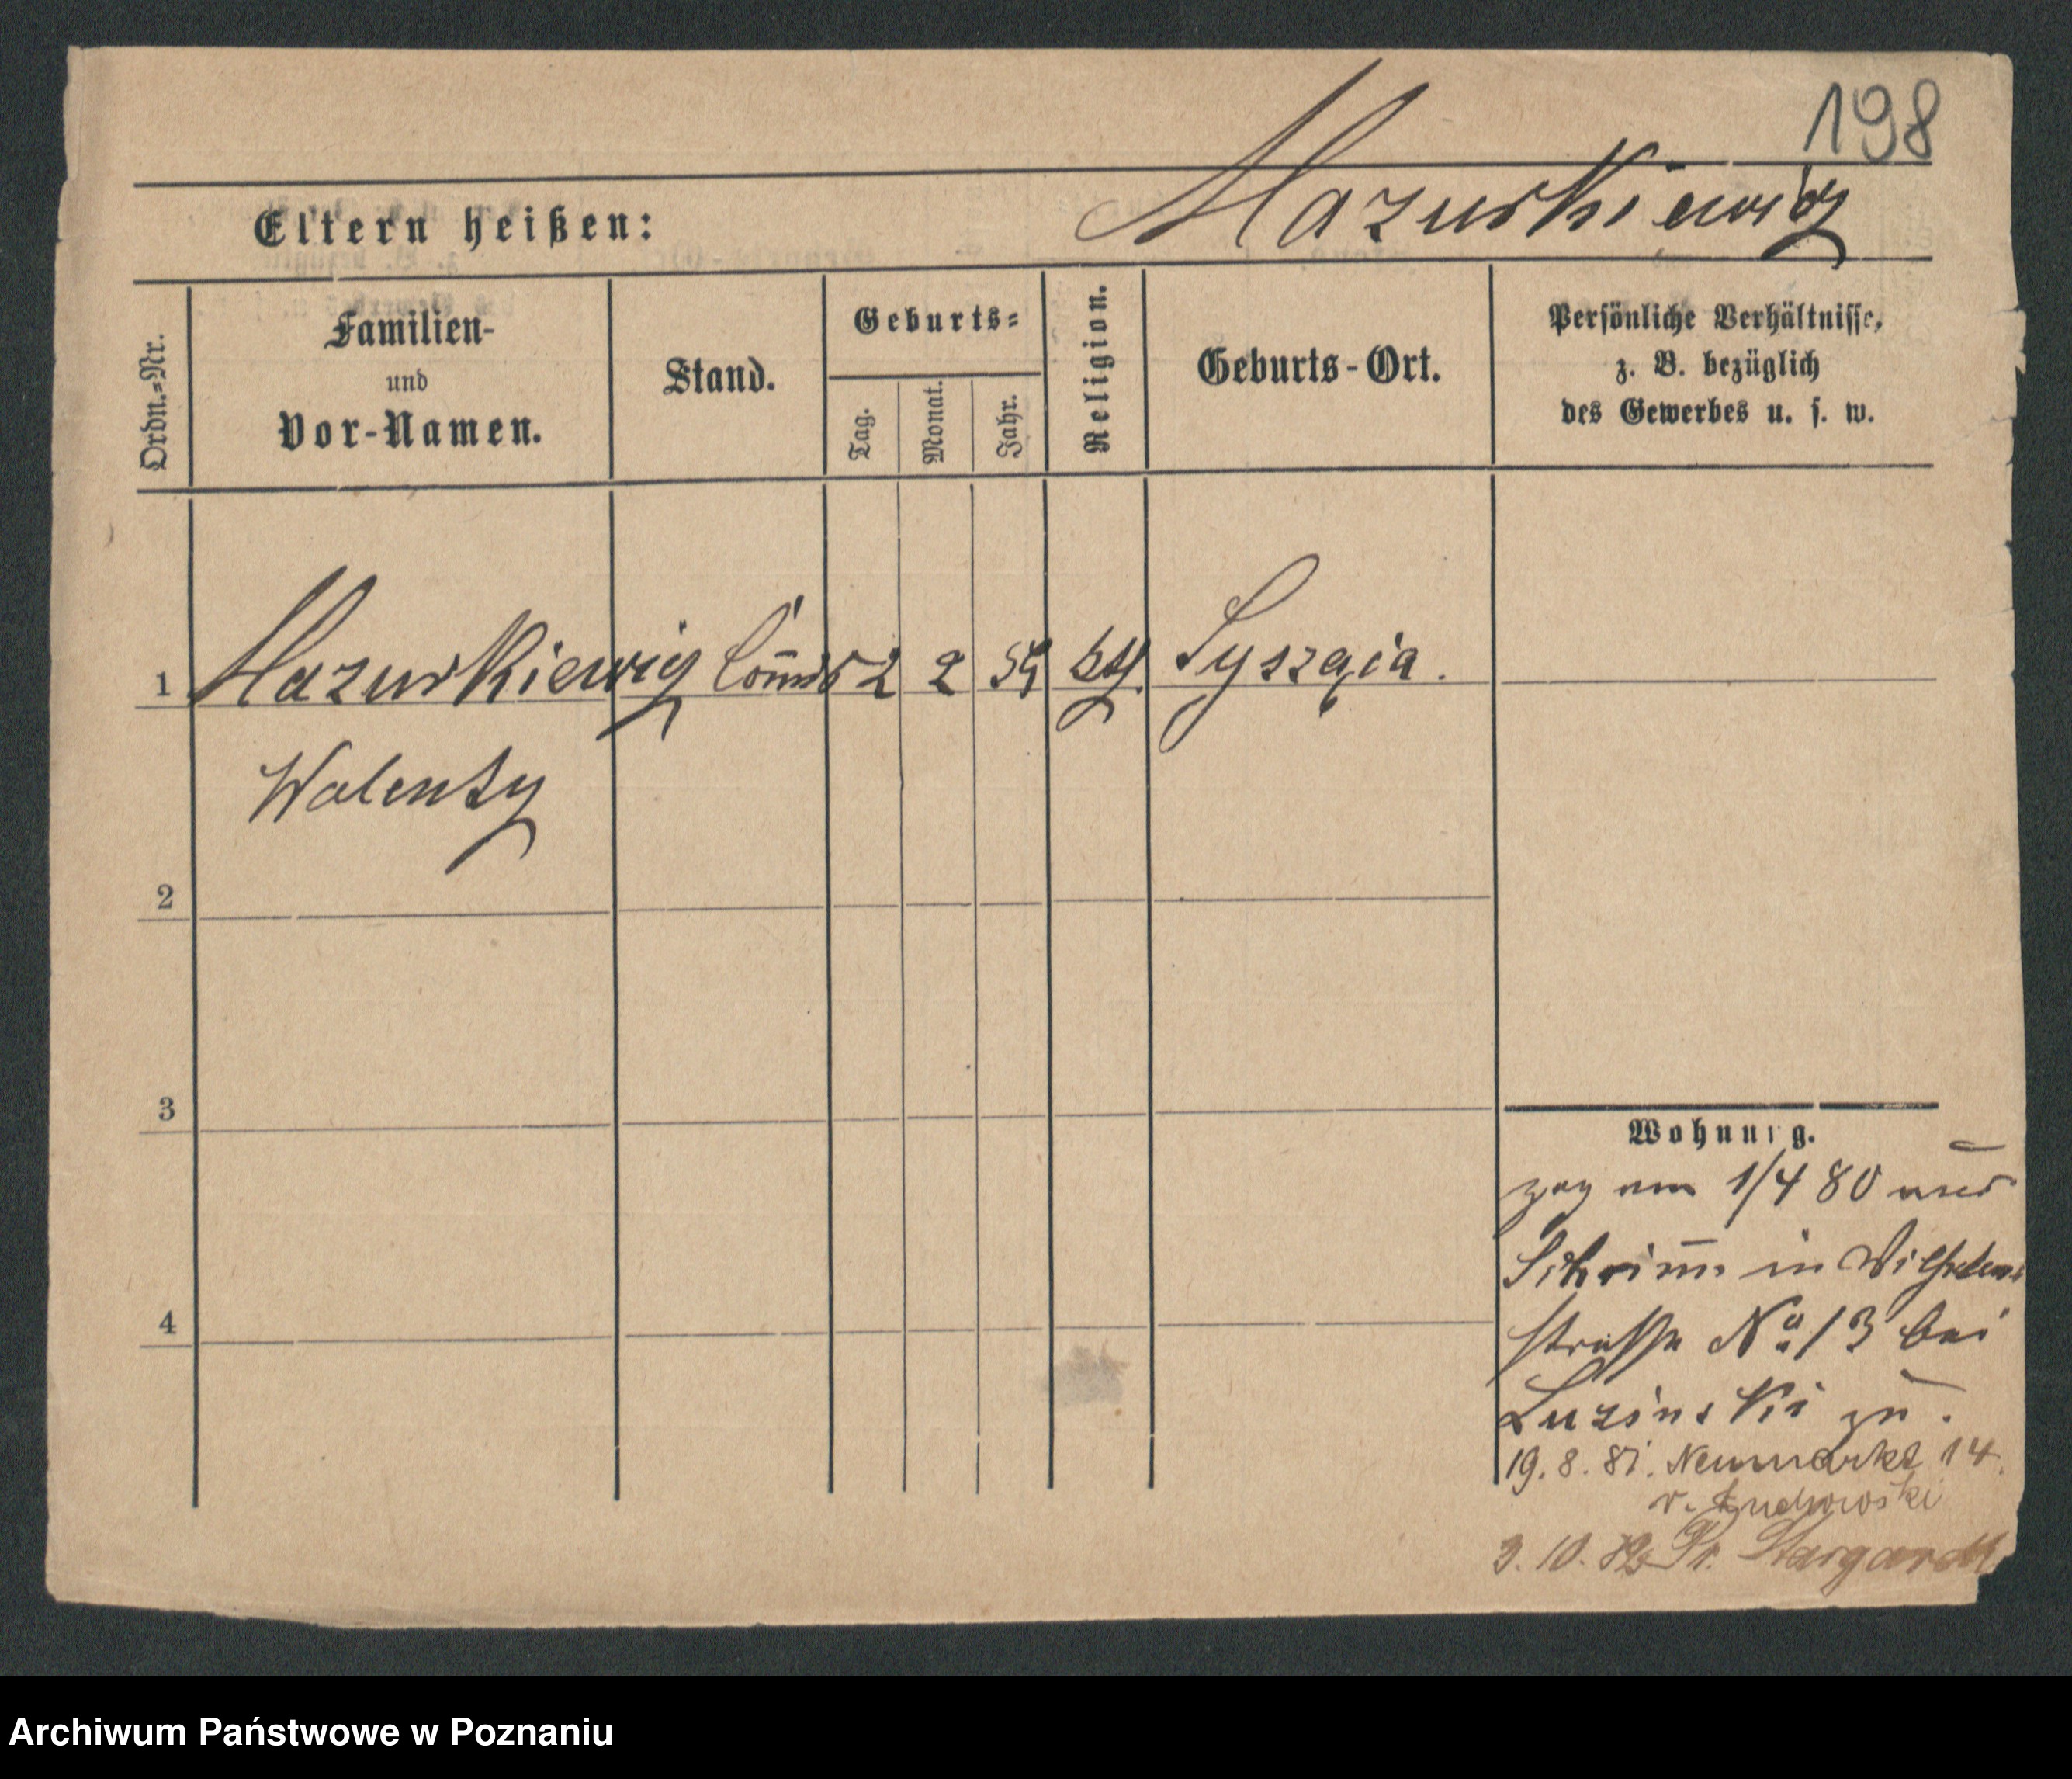 198
Eltern heißen: Mazurkiewicz
Ordn.=Nr.
Familien-
und
Vor-Namen.
Stand.
Geburts=
Tag.
Monat.
Jahr.
Religion.
Geburts-Ort.
Persönliche Verhältnisse,
z. B. bezüglich
des Gewerbes u. s. w.
1 Mazurkiewicz 2 2
Walenty
2
3
4
Wohnung.
zog am 1/4 80 aus
Schrimm in Wilhelms
straße No 13 bei
Luzinski zu.
19. 8. 81. Neumarkt 14.
v.
3. 10. 82 Pr. Stargardt
Archiwum Państwowe w Poznaniu